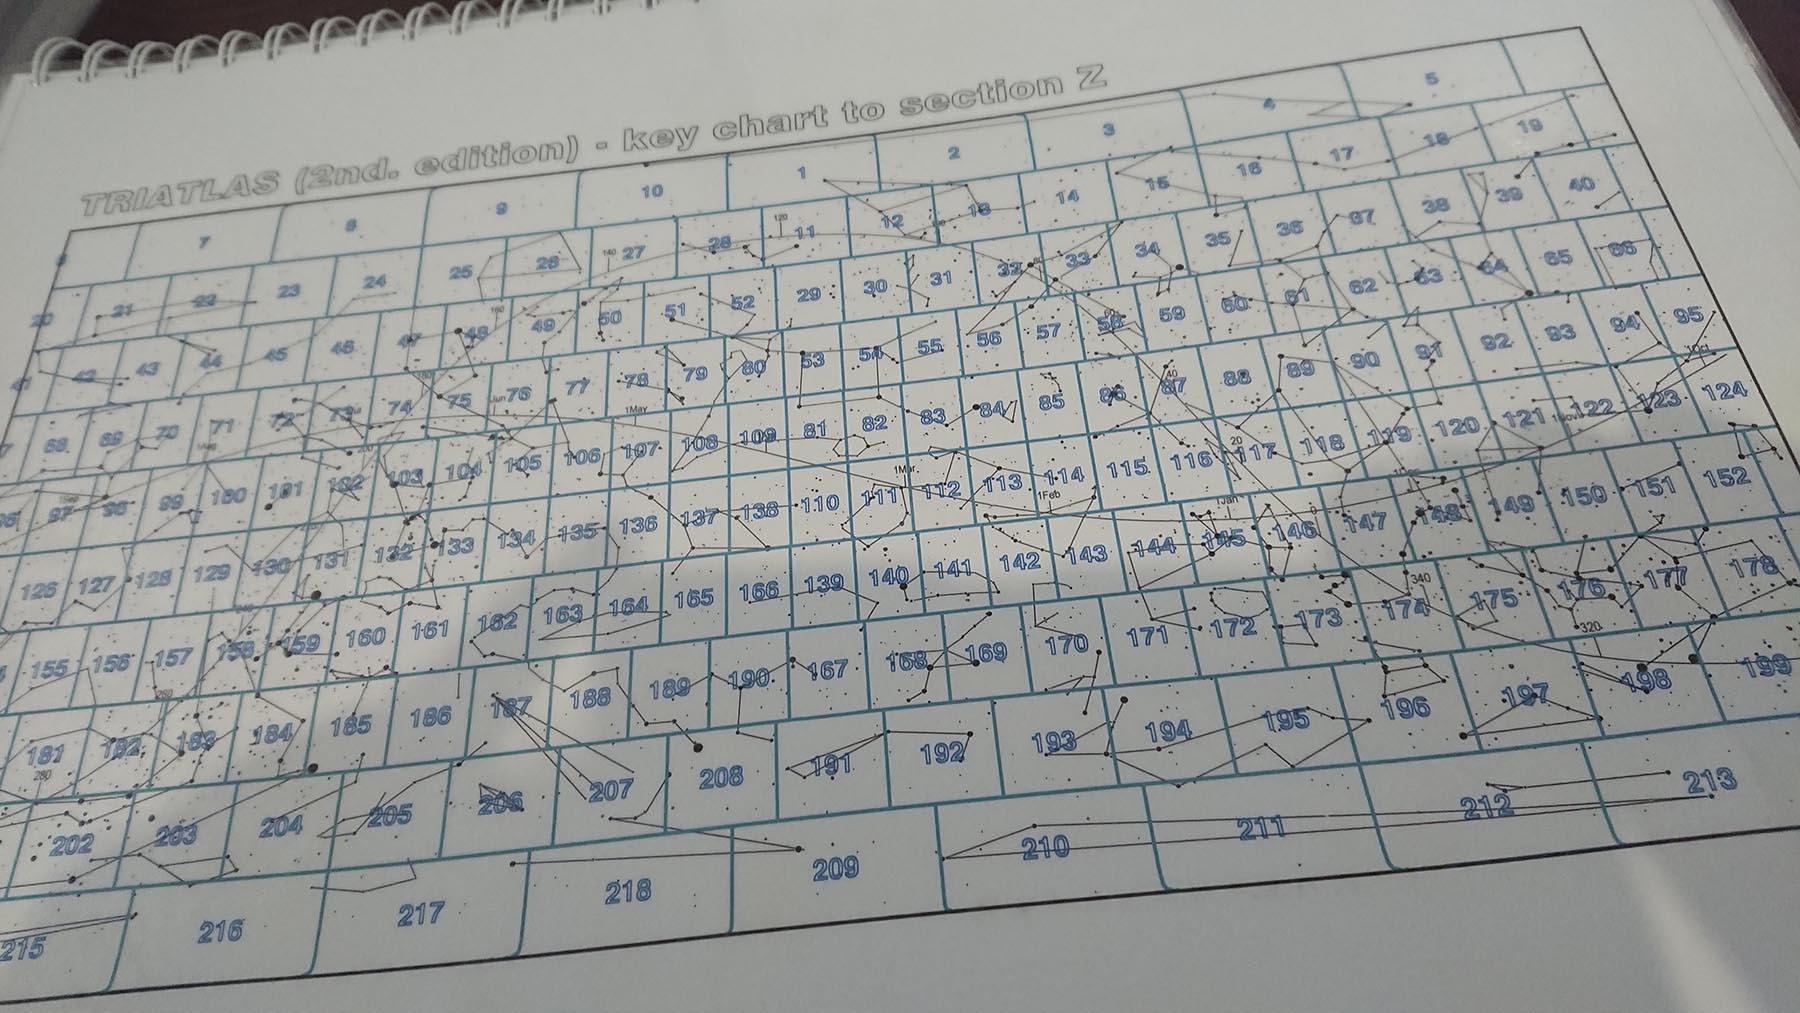 TRIATLAS (2nd. edition) - key chart to section Z
7 8 9 10 1 2 3 4 5
20 21 22 23 24 25 26 27 28 11 12 13 14 15 16 17 18 19
41 42 43 44 45 46 47 48 49 50 51 52 29 30 31 32 33 34 35 36 37 38 39 40
68 69 70 71 72 73 74 75 76 77 78 79 80 53 54 55 56 57 58 59 60 61 62 63 64 65 66
97 98 99 100 101 102 103 104 105 106 107 108 109 81 82 83 84 85 86 87 88 89 90 91 92 93 94 95
126 127 128 129 130 131 132 133 134 135 136 137 138 110 111 112 113 114 115 116 117 118 119 120 121 122 123 124
155 156 157 158 159 160 161 162 163 164 165 166 139 140 141 142 143 144 145 146 147 148 149 150 151 152
181 182 183 184 185 186 187 188 189 190 167 168 169 170 171 172 173 174 175 176 177 178
202 203 204 205 206 207 208 191 192 193 194 195 196 197 198 199
215 216 217 218 209 210 211 212 213
120
140
1May
1Mar
1Feb
1Jan
20
40
340
320
280
280